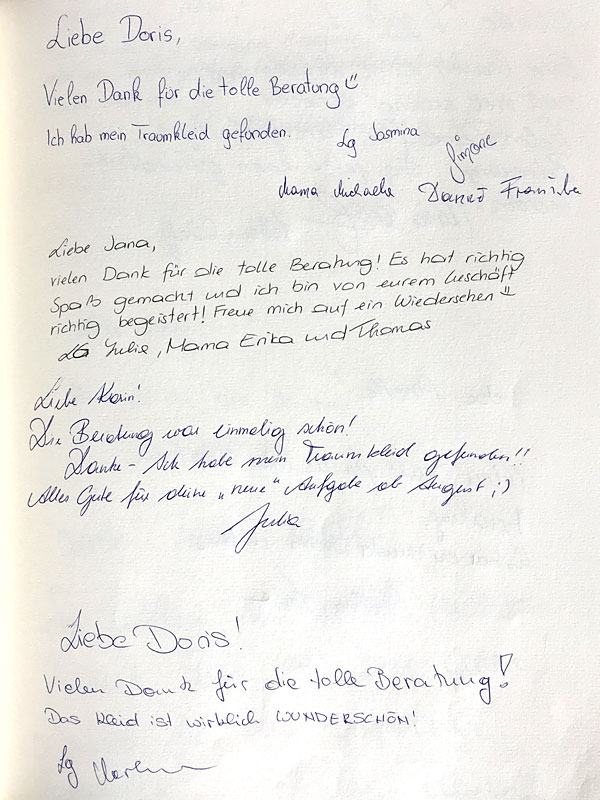 Liebe Doris,
Vielen Dank für die tolle Beratung
Ich hab mein Traumkleid gefunden.
Lg Jasmina
Simone
Mama Michaela
Liebe Jana,
vielen Dank für die tolle Beratung! Es hat richtig
Spaß gemacht und ich bin von eurem Geschäft
richtig begeistert! Freue mich auf ein Wiedersehen
LG Julie, Mama Erika und Thomas
Liebe Karin!
Die Beratung war einmalig schön!
Danke - Ich habe mein Traumkleid gefunden!!
Alles Gute für deine „neue" Aufgabe ab August ;)
Julia
Liebe Doris!
Vielen Dank für die tolle Beratung!
Das Kleid ist wirklich WUNDERSCHÖN!
Lg